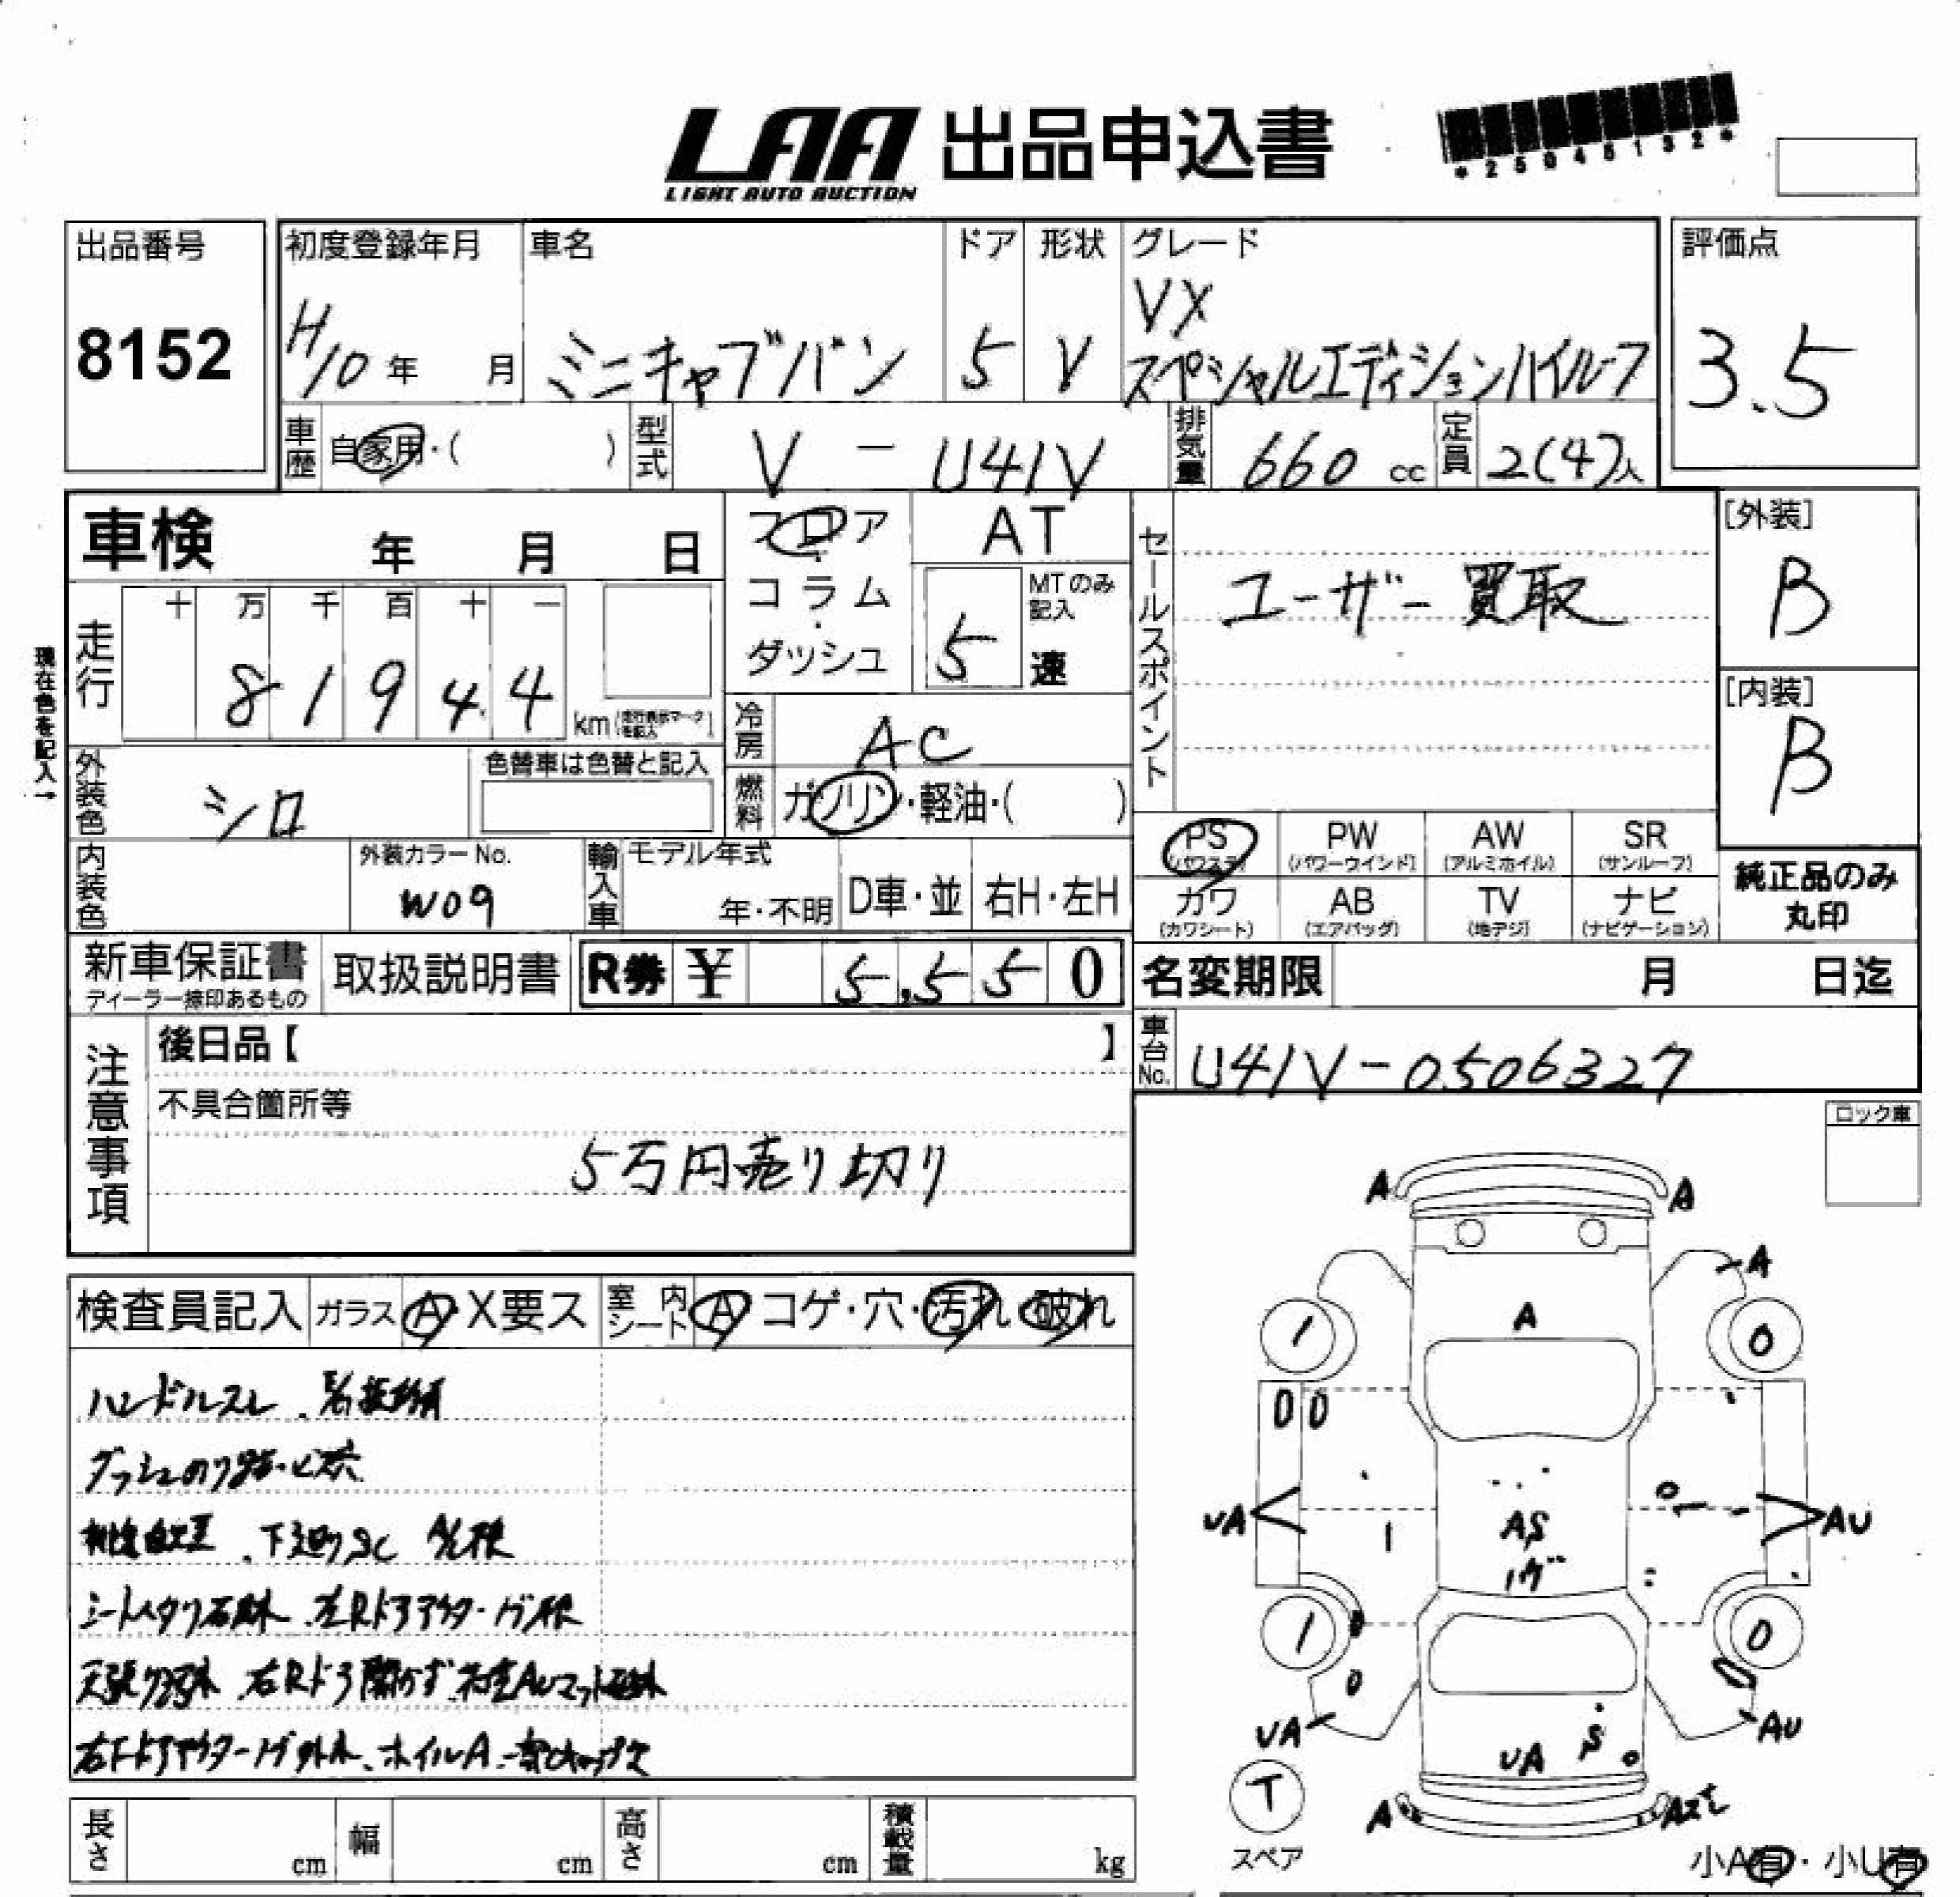 LAA 出品申込書
LIGHT AUTO AUCTION
*25045132*
出品番号
8152
初度登録年月 車名 ドア 形状 グレード
H10年 月 ミニキャブバン 5 V VX
スペシャルエディションハイルーフ
評価点
3.5
車歴 自家用・( ) 型式 V - U41V 排気量 660 cc 定員 2(4)人
車検 年 月 日
フロア
コラム
ダッシュ
AT
MTのみ
記入
5 速
セールスポイント
ユーザー買取
[外装]
B
[内装]
B
現在色を記入→
走行 十 万 千 百 十 一
8 1 9 4 4 km
冷房 AC
外装色 シロ 色替車は色替と記入
燃料 ガソリン・軽油・( )
内装色 外装カラーNo. W09
輸入車 モデル年式 年・不明 D車・並 右H・左H
PS PW AW SR
(パワステ) (パワーウインド) (アルミホイル) (サンルーフ)
カワ AB TV ナビ
(カワシート) (エアバッグ) (地デジ) (ナビゲーション)
純正品のみ
丸印
新車保証書 取扱説明書 R券 ¥ 5,550
ディーラー捺印あるもの
名変期限 月 日迄
注意事項
後日品【 】
不具合箇所等
5万円売り切り
車台No. U41V-0506327
ロック車
検査員記入 ガラス A・X要ス 室内シート A コゲ・穴・汚れ 破れ
ハンドルスレ
シートヘタリ 左Rドアアウター
右Rドア開かず
ホイルA
A A
A
A
1 0
0 0
UA AU
AS
1 0
0
UA AU
UA S
A
T
スペア
小A有・小U有
長さ cm 幅 cm 高さ cm 積載量 kg